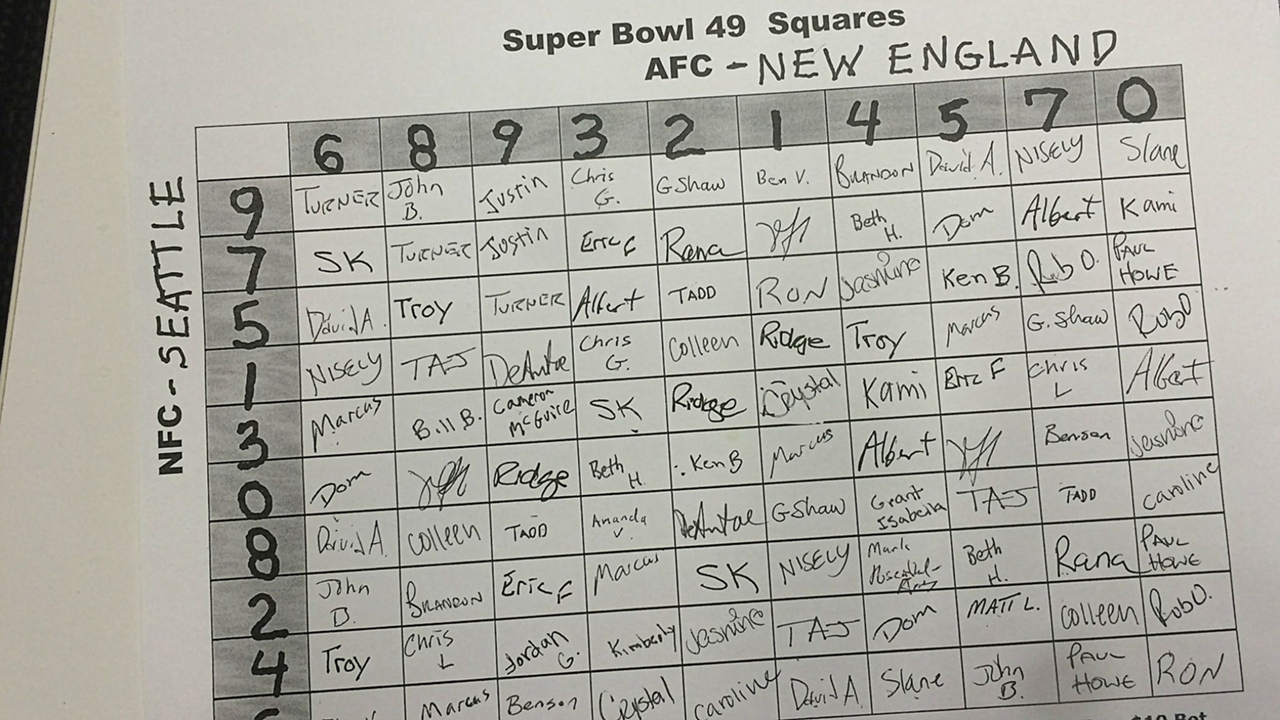 Super Bowl 49 Squares
AFC - NEW ENGLAND
NFC - SEATTLE
6 8 9 3 2 1 4 5 7 0
9 TURNER John B. Justin Chris G. G Shaw Ben V. BRANDON David A. NISELY Slane
7 SK TURNER Justin Eric F Rana Beth H. Dom Albert Kami
5 David A. Troy TURNER Albert TADD RON Jasmine Ken B. Rob O. PAUL HOWE
1 NISELY TAJ DeAntae Chris G. Colleen Ridge Troy Marcus G. Shaw Rob O
3 Marcus Bill B. Cameron McGuire SK Ridge Crystal Kami Eric F Chris L Albert
0 Dom Ridge Beth H. Ken B Marcus Albert Benson Jasmine
8 David A. Colleen TADD Amanda V. DeAntae G Shaw Grant TAJ TADD Caroline
2 John B. BRANDON Eric F Marcus SK NISELY Mark Beth H. Rana PAUL HOWE
4 Troy Chris L Jordan G. Kimberly Jasmine TAJ Dom MATT L. Colleen Rob O.
Marcus Benson Crystal Caroline David A Slane John B. PAUL HOWE RON